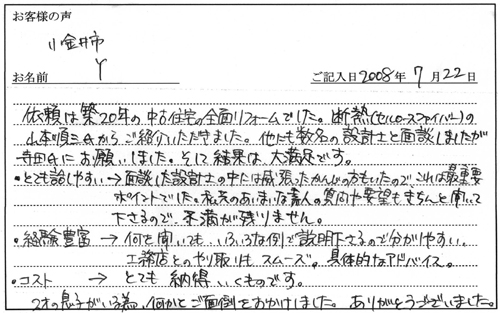 お客様の声
小金井市
Y
お名前 ご記入日2008年7月22日
依頼は築20年の中古住宅の全面リフォームでした。断熱(セルロースファイバー)の
山本順三さんからご紹介いただきました。他にも数名の設計士と面談しましたが
寺田さんにお願いしました。そして結果は大満足です。
・とても話しやすい→面談した設計士の中には威張ったかんじの方もいたのでこれは最重要
ポイントでした。私共のあいまいな素人の質問や要望もきちんと聞いて
下さるので、不満が残りません。
・経験豊富 → 何を聞いても、いろいろな例で説明下さるので分かりやすい。
工務店とのやり取りもスムーズ。具体的なアドバイス。
・コスト → とても納得いくものです。
2才の息子がいる為、何かとご面倒をおかけしました。ありがとうございました。